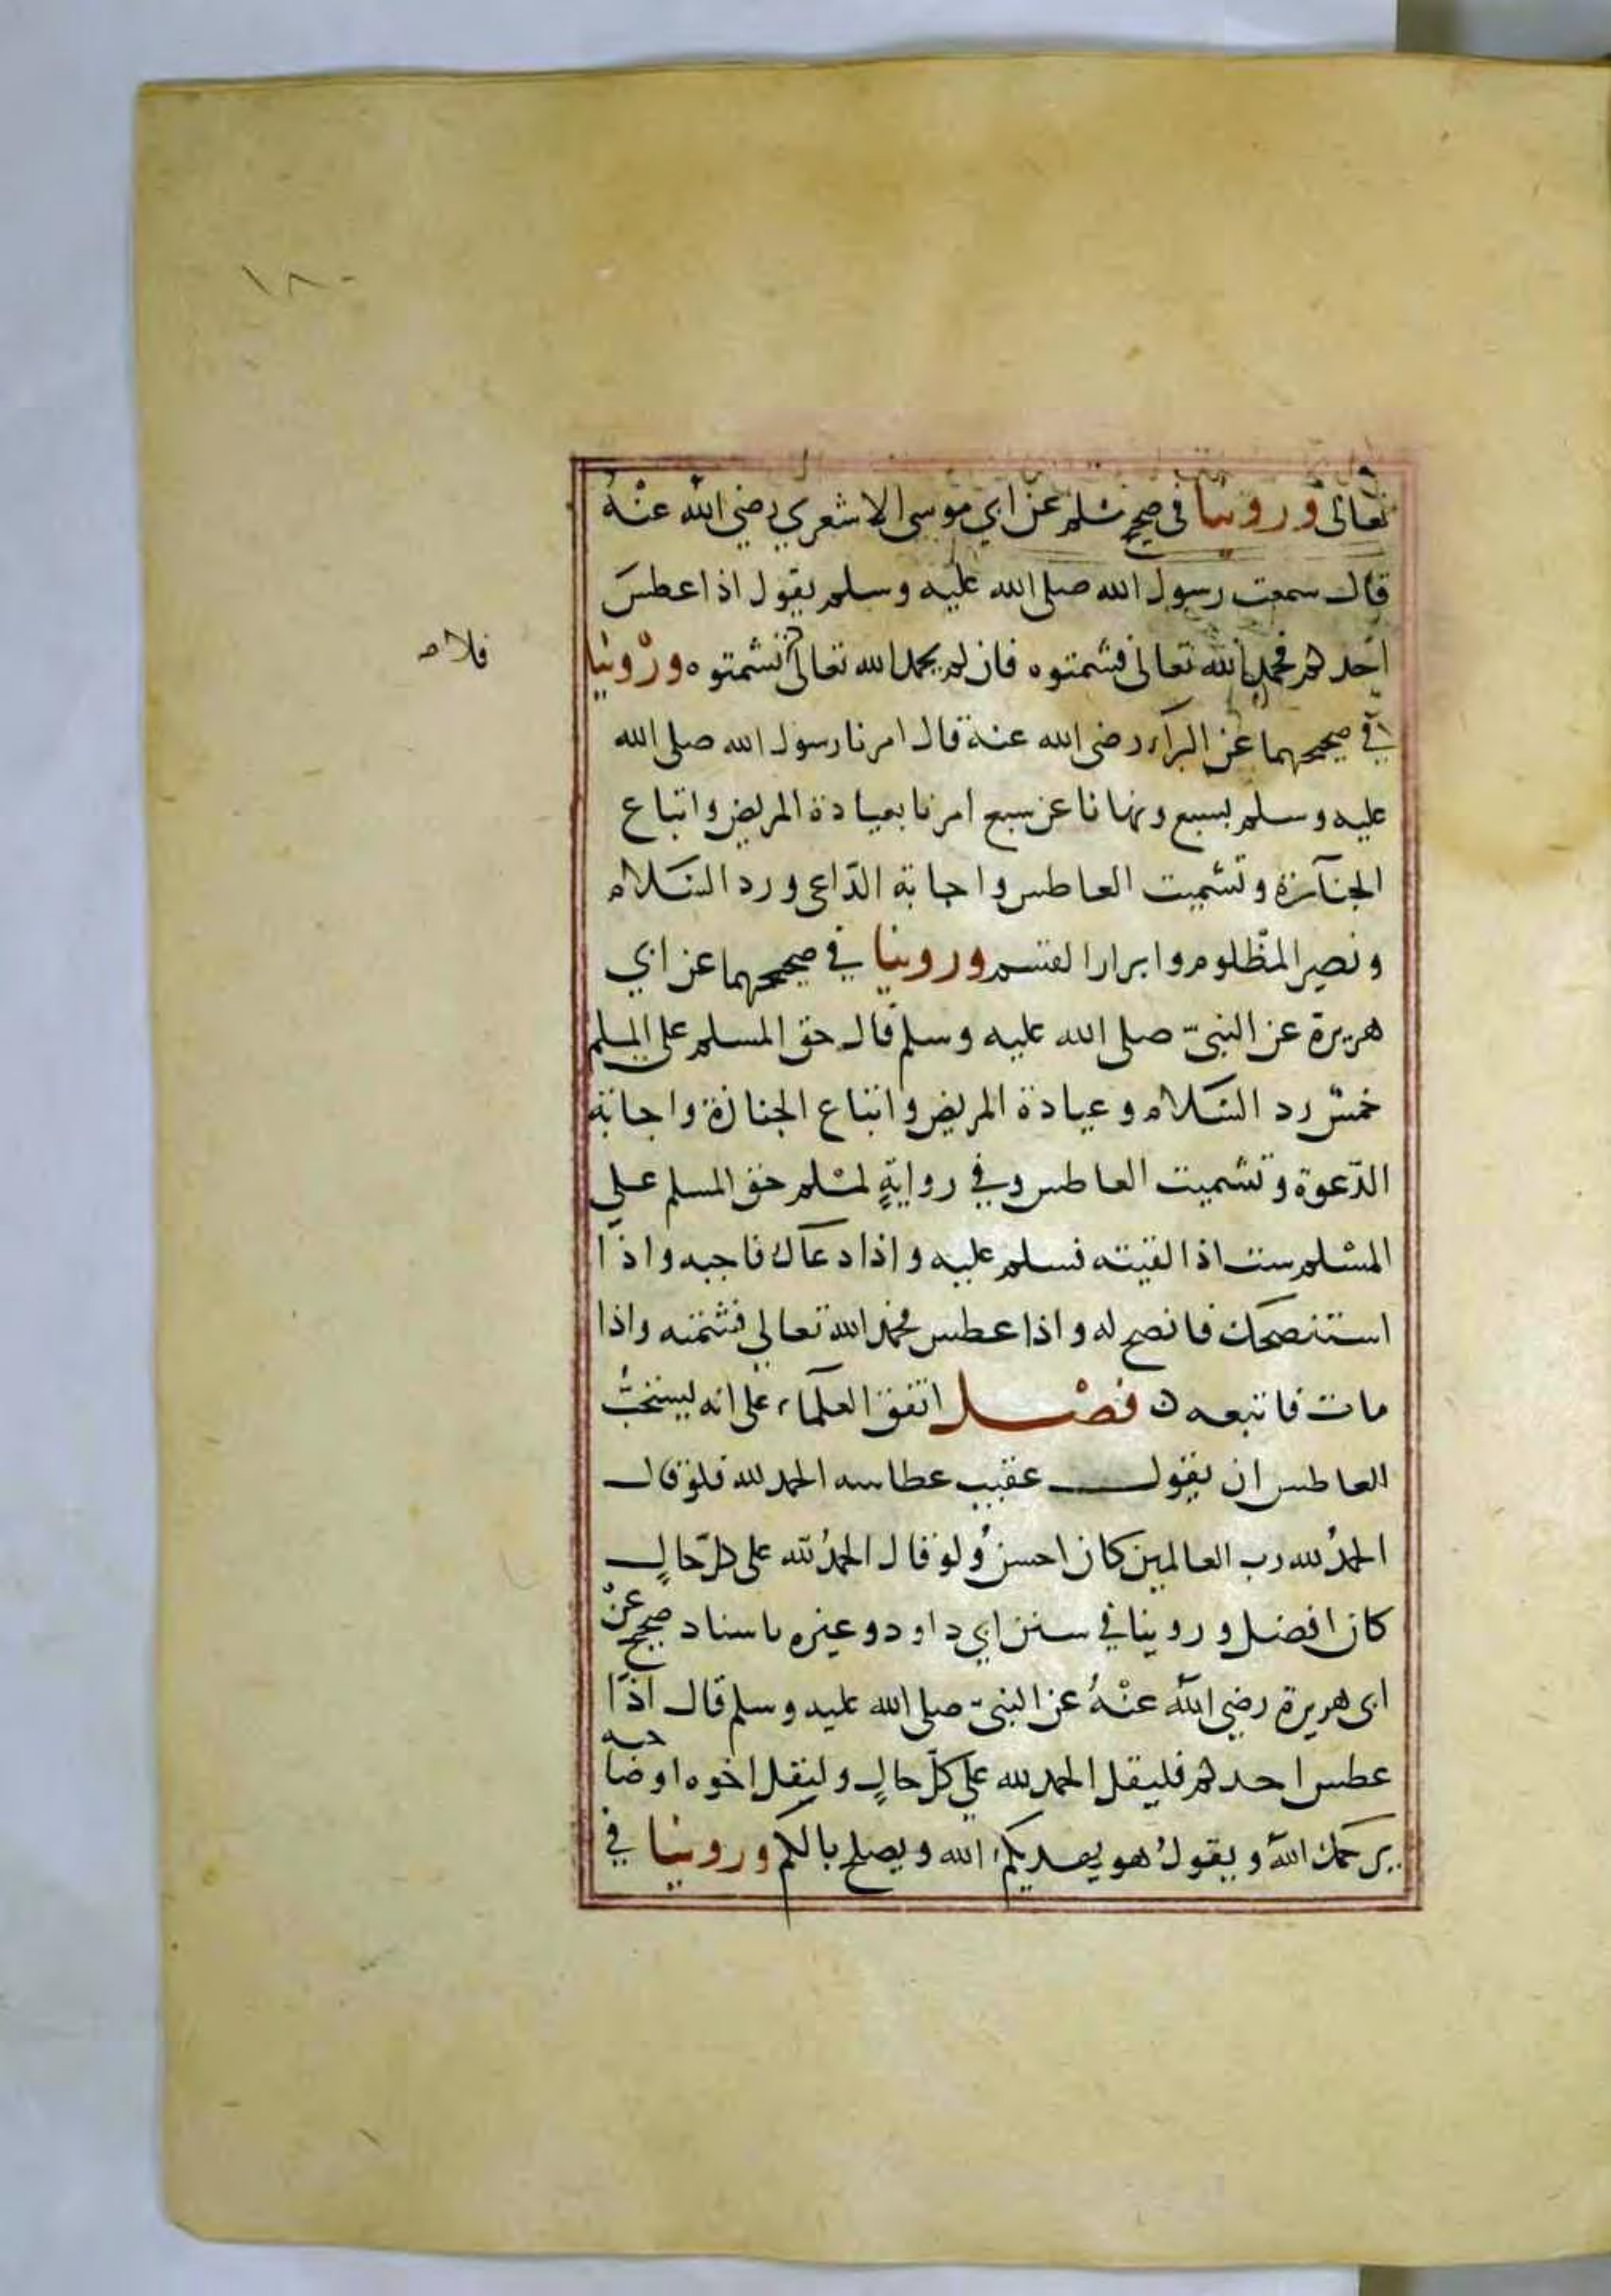 ١٨٠
تعالى وروينا في صحيح مسلم عن ابي موسى الاشعري رضي الله عنه
قال سمعت رسول الله صلى الله عليه وسلم يقول اذا عطس
احدكم فحمد الله تعالى فشمتوه فان لم يحمد الله تعالى تشمتوه وروينا
فلا صـ
في صحيحهما عن البراء رضى الله عنه قال امرنا رسول الله صلى الله
عليه وسلم بسبع ونهانا عن سبع امرنا بعيادة المريض واتباع
الجنازة وتشميت العاطس واجابة الداعى ورد السلام
ونصر المظلوم وابرار القسم وروينا في صحيحهما عن ابي
هريرة عن النبي صلى الله عليه وسلم قال حق المسلم على المسلم
خمس رد السلام وعيادة المريض واتباع الجنازة واجابة
الدّعوة وتشميت العاطس وفي روايةٍ لمسلم حق المسلم على
المسلم ست اذا لقيته فسلم عليه واذا دعاك فاجبه واذا
استنصحك فانصح له واذا عطس فحمد الله تعالى فشمته واذا
مات فاتبعه فصل اتفق العلماء على انه يستحبّ
العاطس ان يقول عقيب عطاسه الحمد لله فلو قال
الحمدُ لله رب العالمين كان احسن ولو قال الحمدُ لله على كلّ حالٍ
كان افضل وروينا في سنن ابي داود وغيره باسناد صحيح عن
ابى هريرة رضي الله عنْهُ عن النبيّ صلى الله عليه وسلم قال اذا
عطس احدكم فليقل الحمد لله على كلّ حالٍ وليقل اخوه او صاحبه
يرحمك الله ويقولُ هو يهديكم الله ويصلح بالكم وروينا في